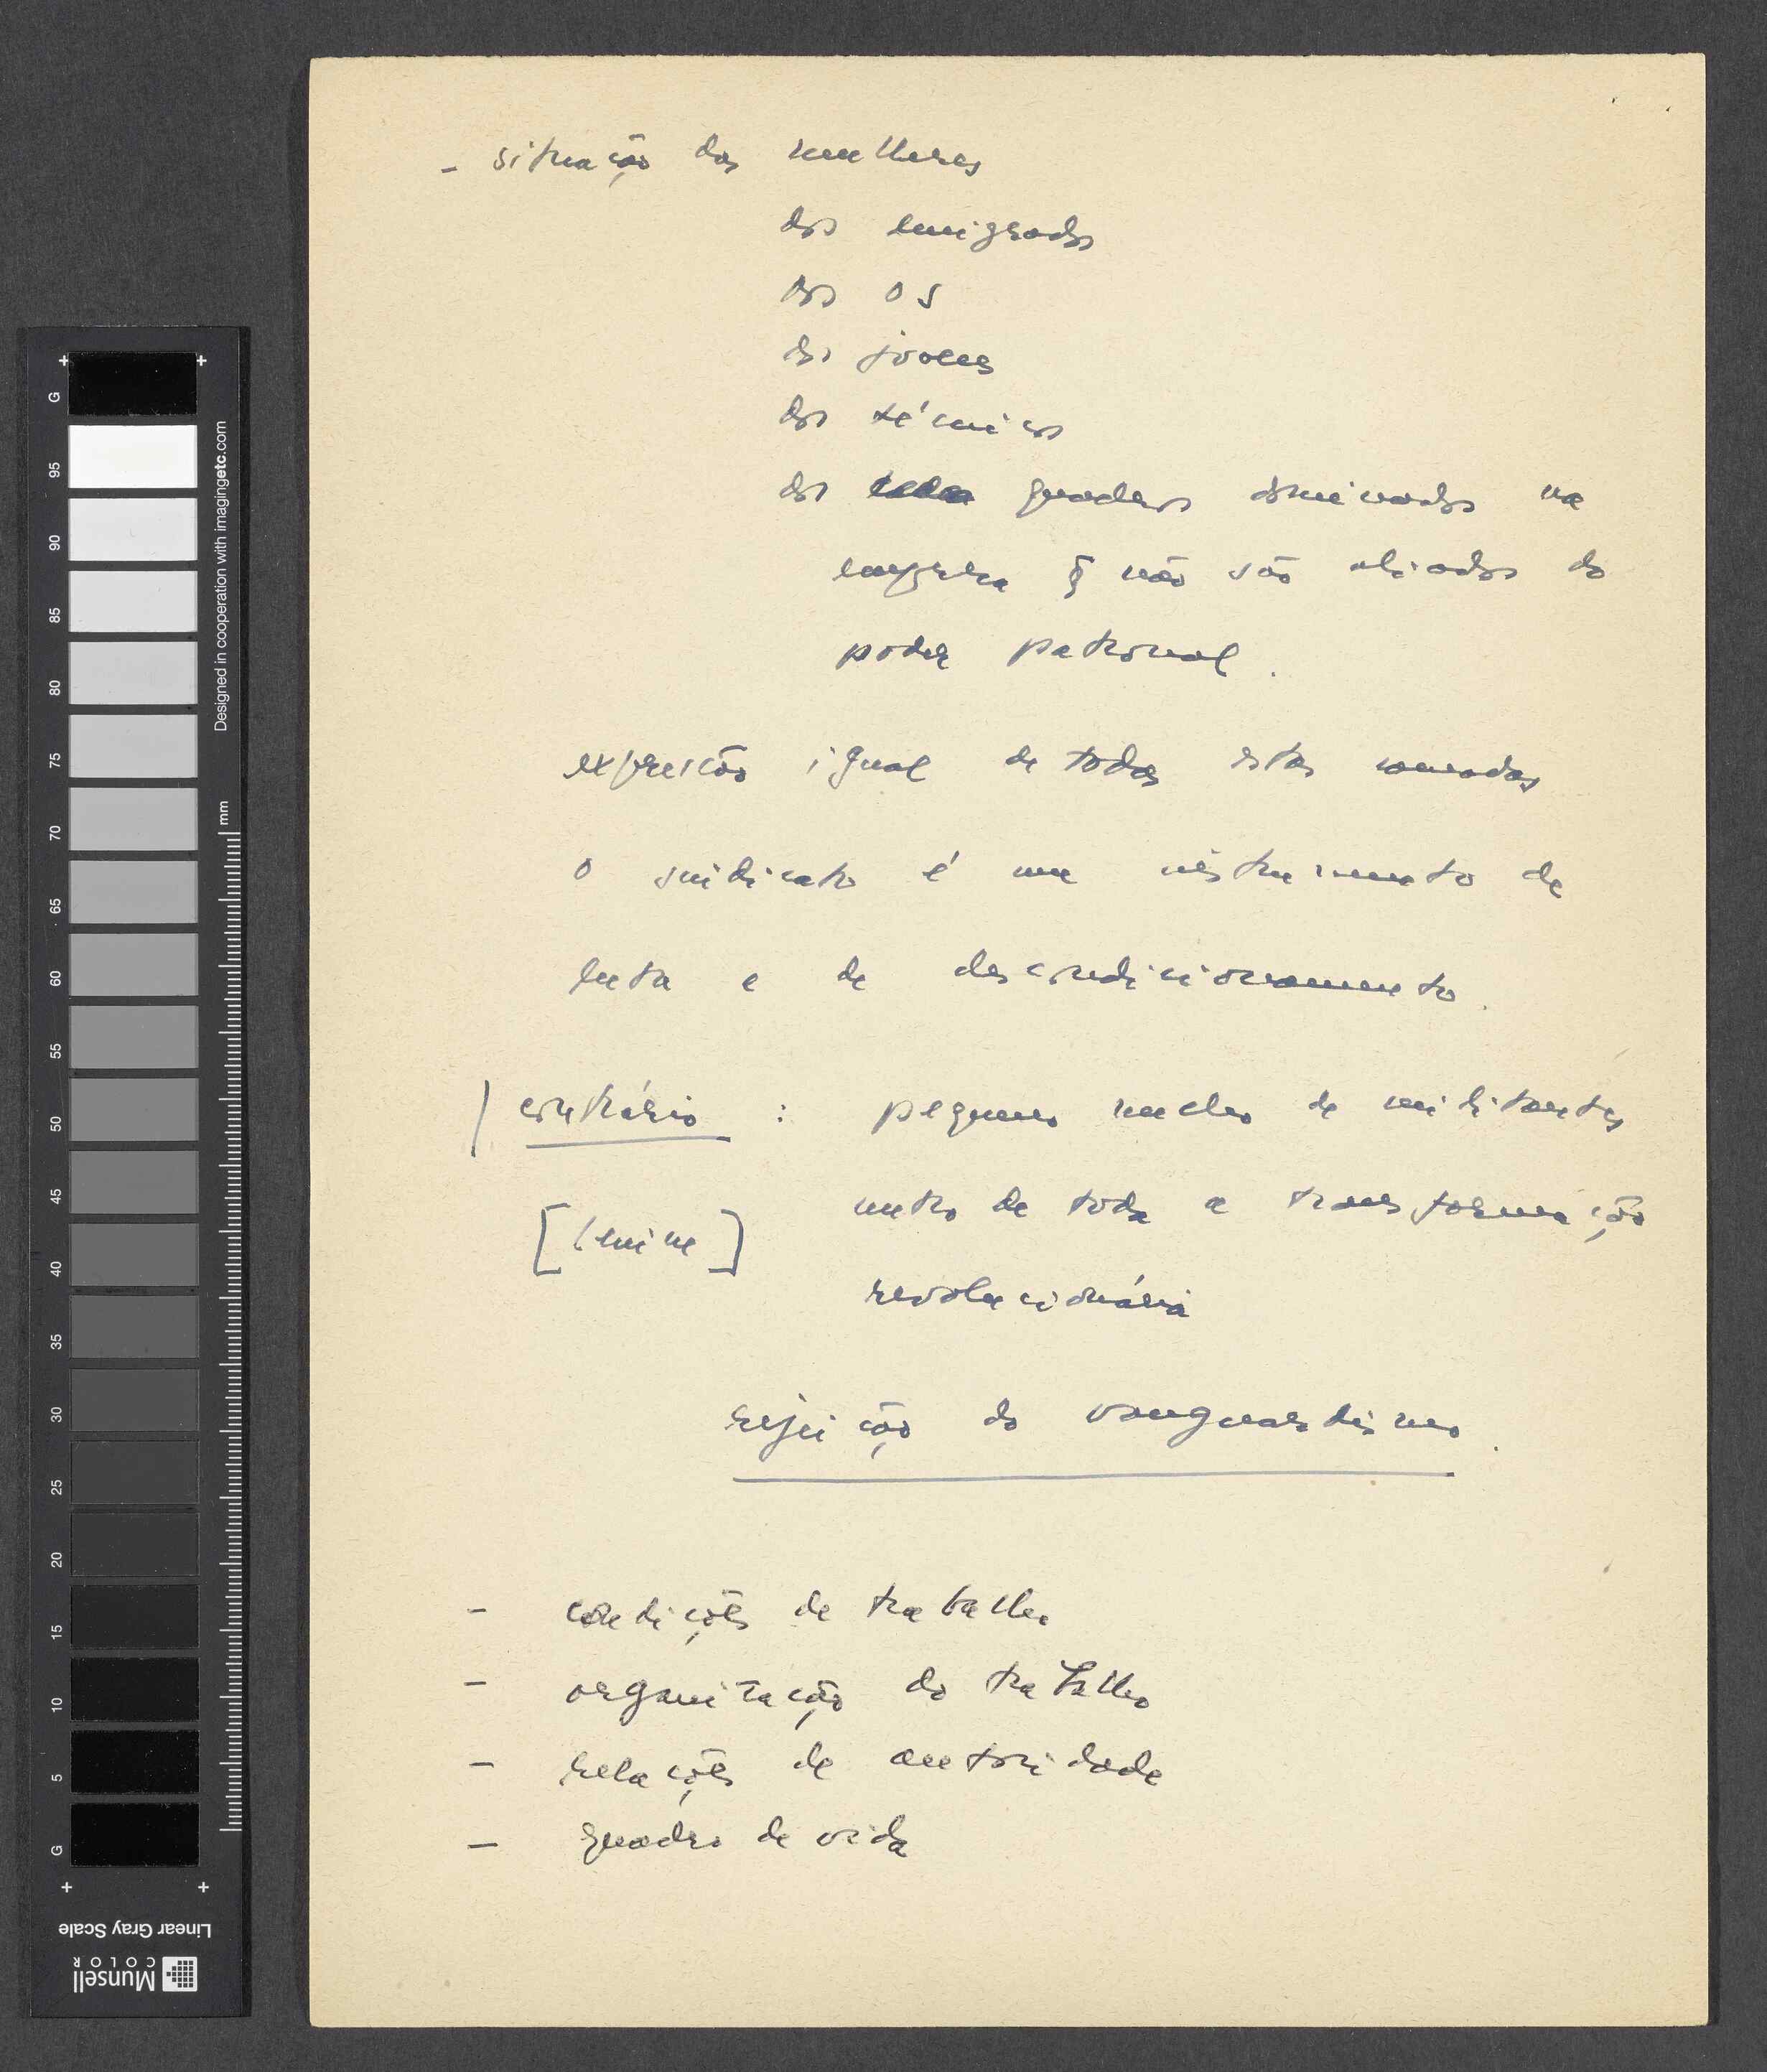 - situação das mulheres
dos emigrados
dos OS
dos jovens
dos técnicos
dos quadros dominados na
empresa q̃ não são aliados do
poder patronal.
expressão igual de todas estas camadas
o sindicato é um instrumento de
luta e de descondicionamento.
| contrário : pequeno nucleo de militantes
[Lenine] de toda a transformação
revolucionária
rejeição do vanguardismo.
- condições de trabalho
- organização do trabalho
- relações de autoridade
- quadro de vida
G
95
90
85
80
75
70
65
60
55
50
45
40
35
30
25
20
15
10
5
G
Designed in cooperation with imagingetc.com
mm
Linear Gray Scale
Munsell
COLOR